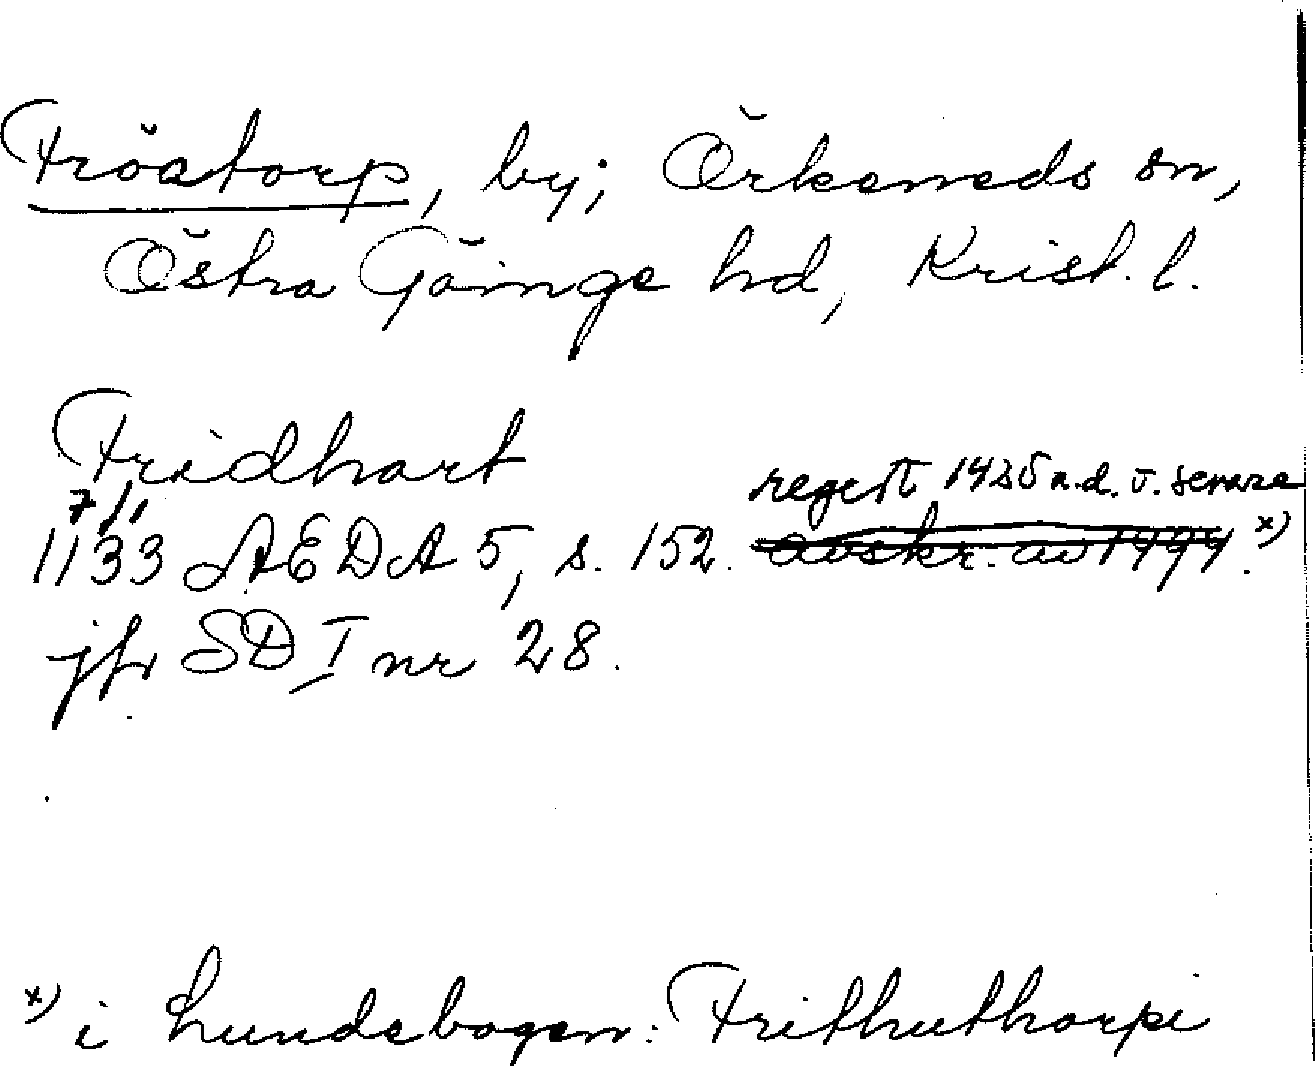 Fröatorp, by; Örkeneds sn,
Östra Göinge hd, Krist. l.
Fridhart
7/1
regest 1425 n.d. o. senare
1133 AEDA 5, s. 152. avskr. av 1494. x)
jfr SD I nr 28.
x) i Lundebogen: Frithuthorpi